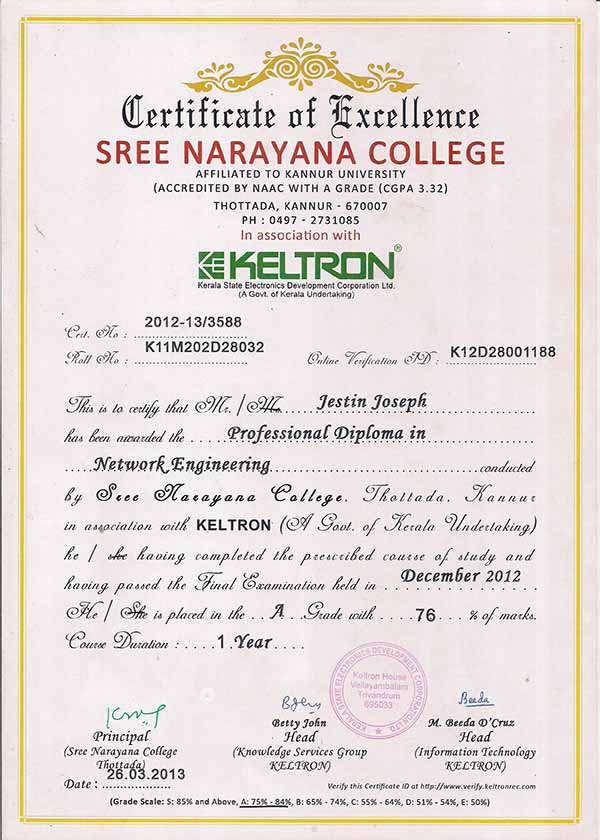 Certificate of Excellence
SREE NARAYANA COLLEGE
AFFILIATED TO KANNUR UNIVERSITY
(ACCREDITED BY NAAC WITH A GRADE (CGPA 3.32)
THOTTADA, KANNUR - 670007
PH : 0497 - 2731085
In association with
KELTRON®
Kerala State Electronics Development Corporation Ltd.
(A Govt. of Kerala Undertaking)
Cert. No : 2012-13/3588
Roll No : K11M202D28032 Online Verification ID : K12D28001188
This is to certify that Mr. / Ms. Jestin Joseph
has been awarded the Professional Diploma in
Network Engineering conducted
by Sree Narayana College, Thottada, Kannur
in association with KELTRON (A Govt. of Kerala Undertaking)
he / she having completed the prescribed course of study and
having passed the Final Examination held in December 2012
He / She is placed in the A Grade with 76 % of marks.
Course Duration : 1 Year
KERALA STATE ELECTRONICS DEVELOPMENT CORPORATION LTD.
Keltron House
Vellayambalam
Trivandrum
695033
Beeda
Principal
(Sree Narayana College
Thottada)
Date : 26.03.2013
Betty John
Head
(Knowledge Services Group
KELTRON)
M. Beeda D'Cruz
Head
(Information Technology
KELTRON)
Verify this Certificate ID at http://www.verify.keltronrec.com
(Grade Scale: S: 85% and Above, A: 75% - 84%, B: 65% - 74%, C: 55% - 64%, D: 51% - 54%, E: 50%)